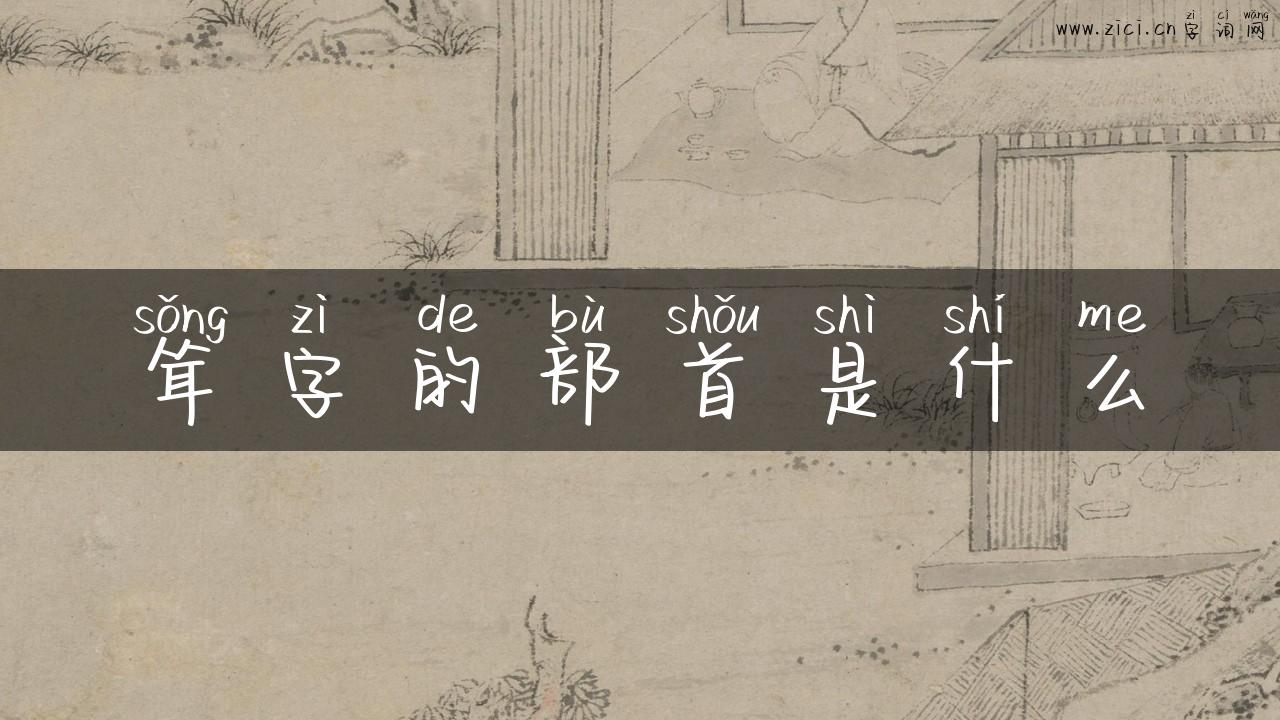 zì cí wǎng
www.zici.cn字词网
sǒng zì de bù shǒu shì shí me
耸字的部首是什么